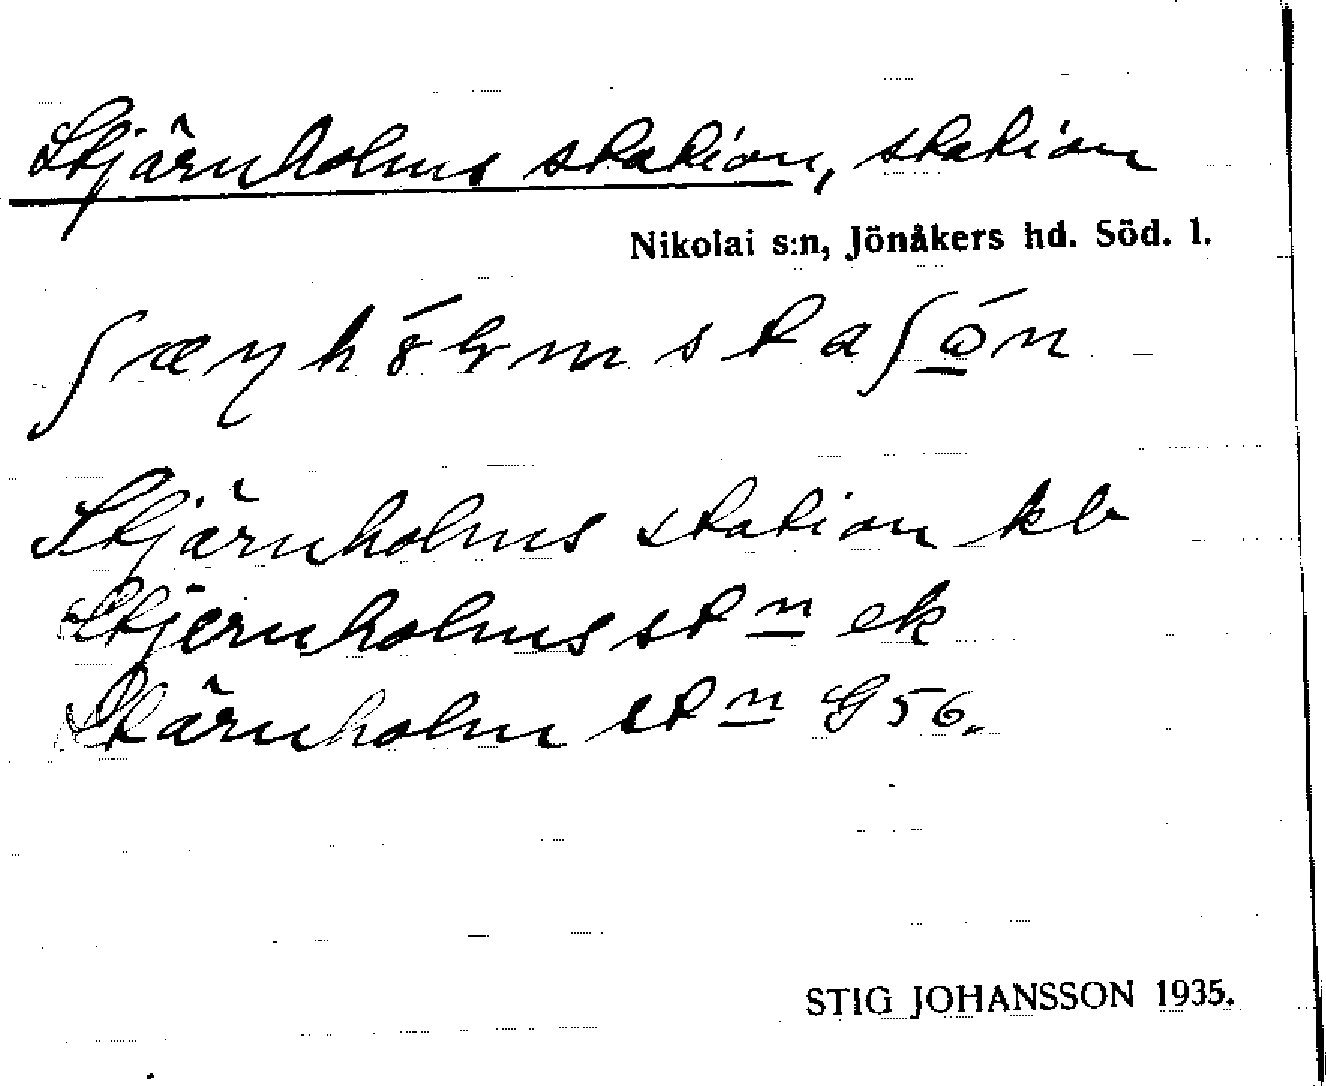 Stjärnholms station, station
Nikolai s:n, Jönåkers hd. Söd. l.
Stjärnholms station kb
Stjernholms stn ek
Stärnholm stn G 56.
STIG JOHANSSON 1935.